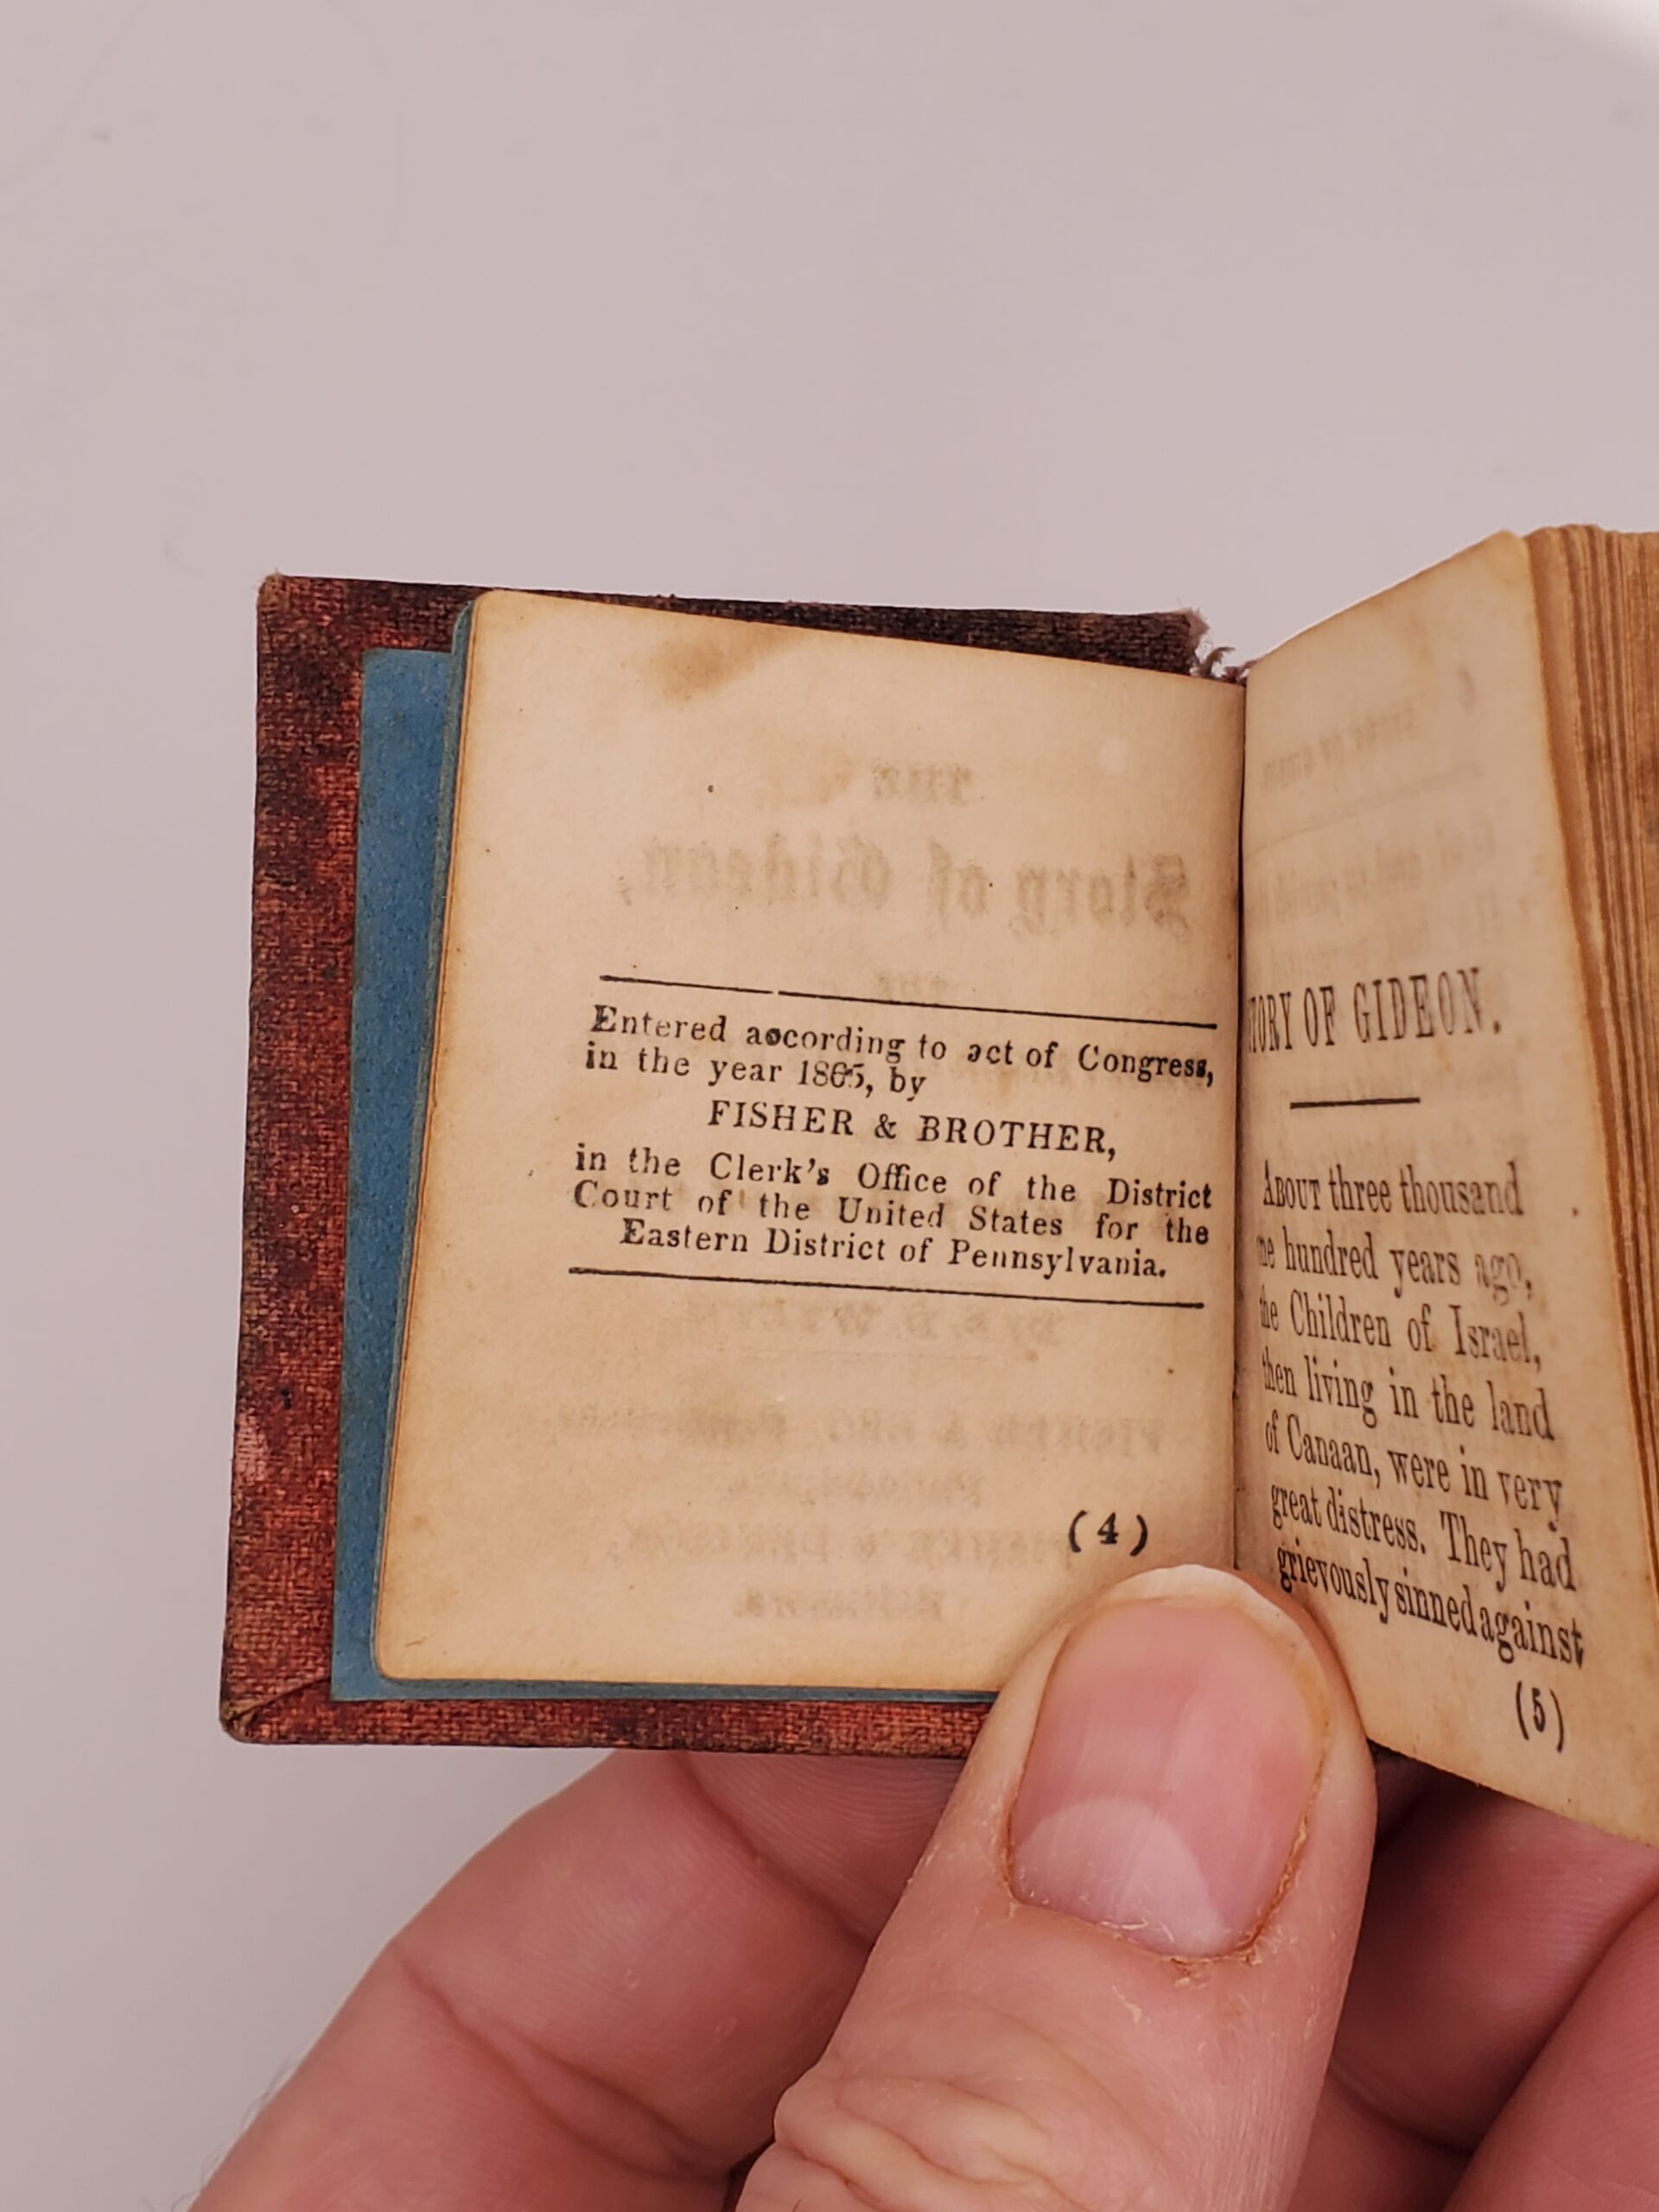 Entered according to act of Congress,
in the year 1865, by
FISHER & BROTHER,
in the Clerk's Office of the District
Court of the United States for the
Eastern District of Pennsylvania.
(4)
TORY OF GIDEON.
ABOUT three thousand
ne hundred years ago,
the Children of Israel,
then living in the land
of Canaan, were in very
great distress. They had
grievously sinned against
(5)